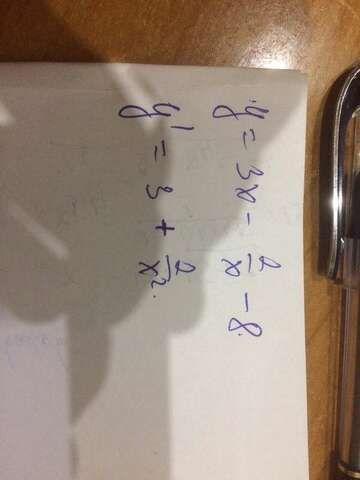 y = 3x - 2/x - 8.
y' = 3 + 2/x².